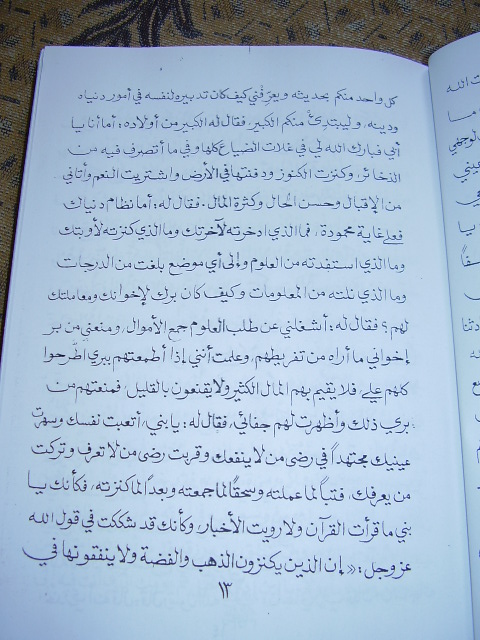 كل واحد منكم بحديثه ويعرّفني كيف كان تدبيره لنفسه في أمور دنياه
ودينه، وليبتدئ منكم الكبير فقال له الكبير من أولاده: أما أنا يا
أبي فبارك الله لي في غلات الضياع كلها وفي ما أتصرف فيه من
الذخائر، وكنزت الكنوز ودفنتها في الأرض واشتريت النعم وأتاني
من الإقبال وحسن الحال وكثرة المال. فقال له: أما نظام دنياك
فعلى غاية محمودة، فما الذي ادخرته لآخرتك وما الذي كنزته لأوبتك
وما الذي استفدته من العلوم وإلى أي موضع بلغت من الدرجات
وما الذي نلته من المعلومات وكيف كان برك لإخوانك ومعاملتك
لهم؟ فقال له: أشغلني عن طلب العلوم جمع الأموال، ومنعني من بر
إخواني ما أراه من تفريطهم، وعلمت أنني إذا أطمعتهم ببري اطّرحوا
كلهم علي، فلا يقيم بهم المال الكثير ولا يقنعون بالقليل، فمنعتهم من
بري ذلك وأظهرت لهم جفائي، فقال له: يا بني، أتعبت نفسك وسهرت
عينيك مجتهداً في رضى من لا ينفعك وقربت رضى من لا تعرف وتركت
من يعرفك، فتباً لما عملته وسحقاً لما جمعته وبعداً لما كنزته، فكأنك يا
بني ما قرأت القرآن ولا رويت الأخبار، وكأنك قد شككت في قول الله
عز وجل: «إن الذين يكنزون الذهب والفضة ولا ينفقونها في
١٣